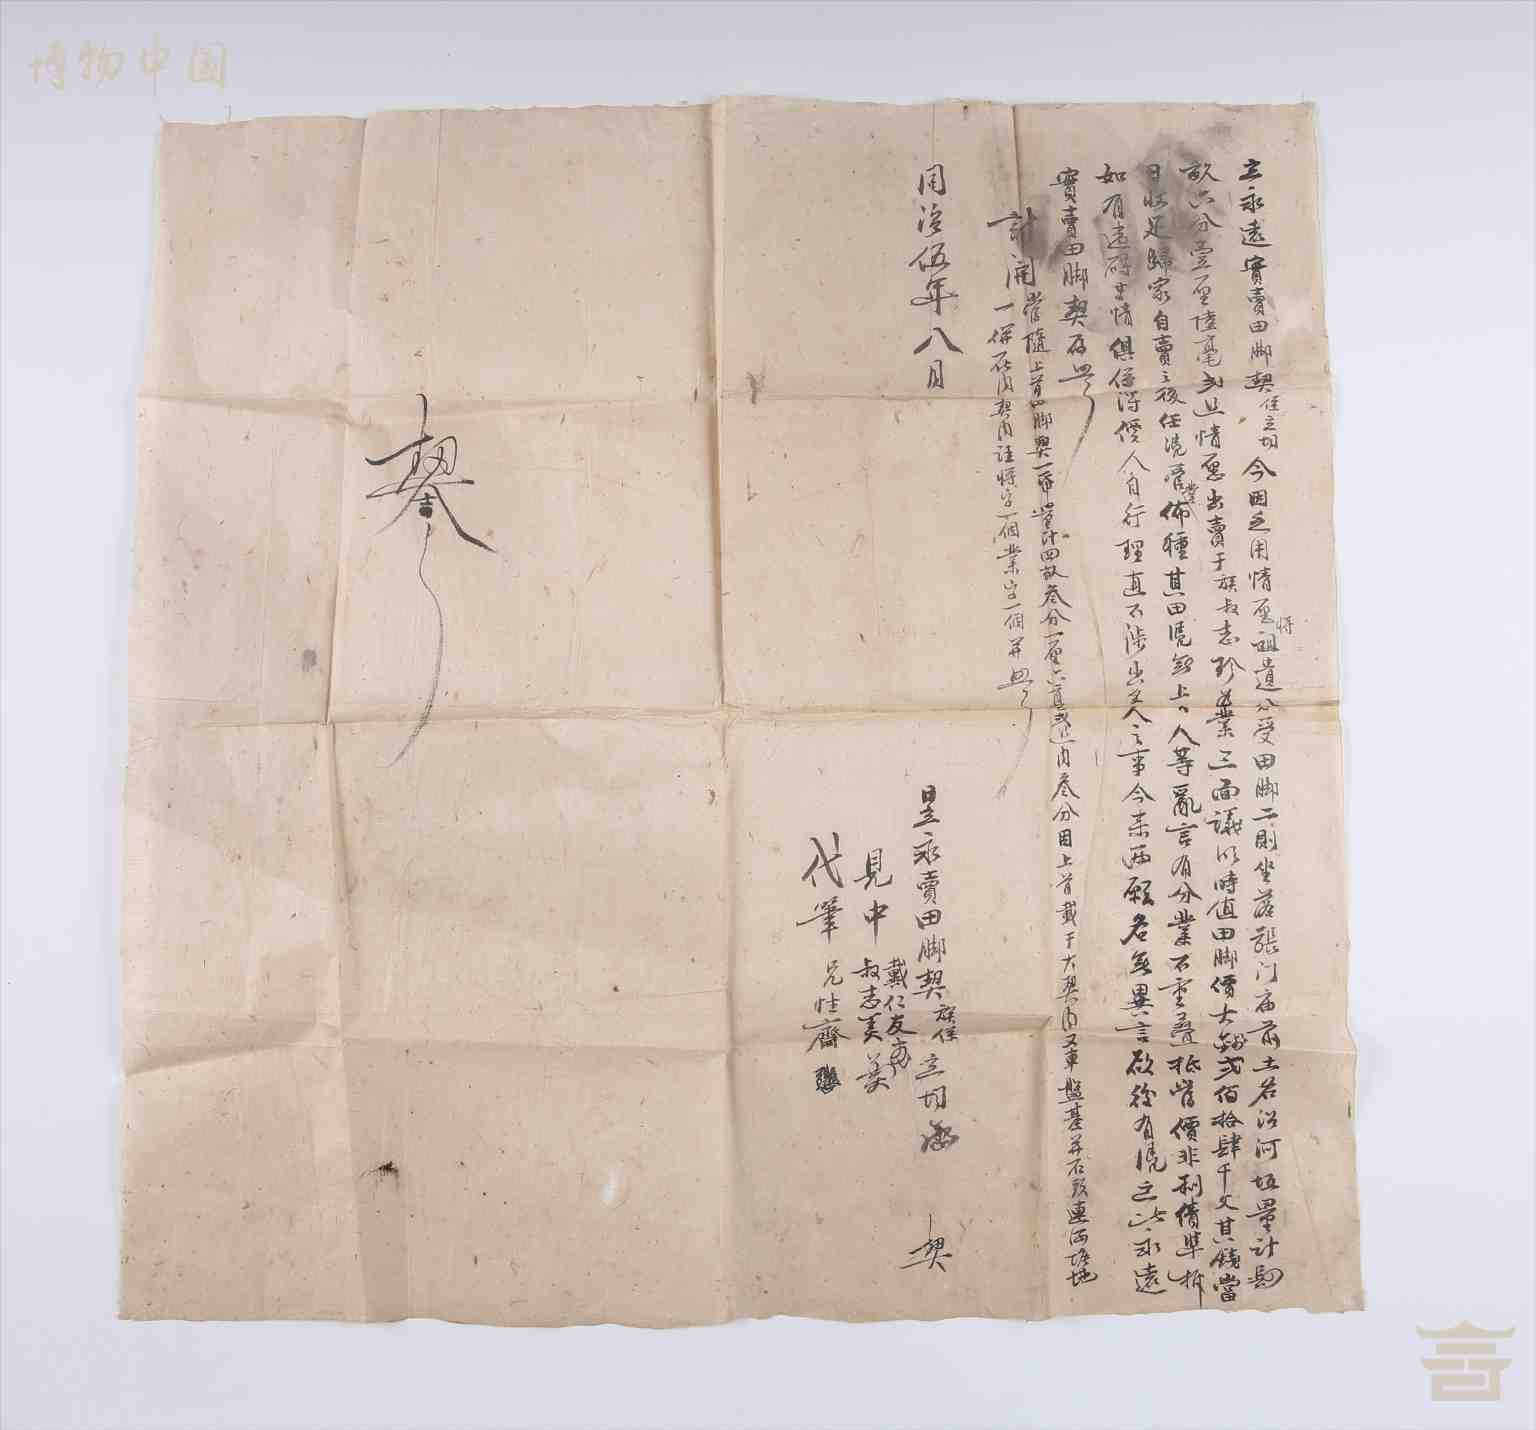 博物中国
立永遠實賣田脚契侄立切今因乏用情愿將祖遺分受田脚二則坐落張门庙前土名沿河坵量計
畝六分壹厘陸毫式逃情愿出賣于族叔志珍為業三面議作時值田脚價大錢弍佰拾肆千文其錢當
日收足歸家自賣之後任凴管業佈種其田凴無上人等亂言有分業不重叠抵當價非利債準折
如有違碍事情俱係得價人自行理直不涉出人之事今来两願各無異言欲後有凴立此永遠
實賣田脚契存照
計開當隨上首田脚契一昏計四畝叁分一厘六毫内叁分因上首載于大契内又車盤基并石頭連地
一併在内契内註將字一個業字一個并照
同治伍年八月
日立永賣田脚契族侄立切
見中戴仁友 叔志美
代筆兄性齋
契
契